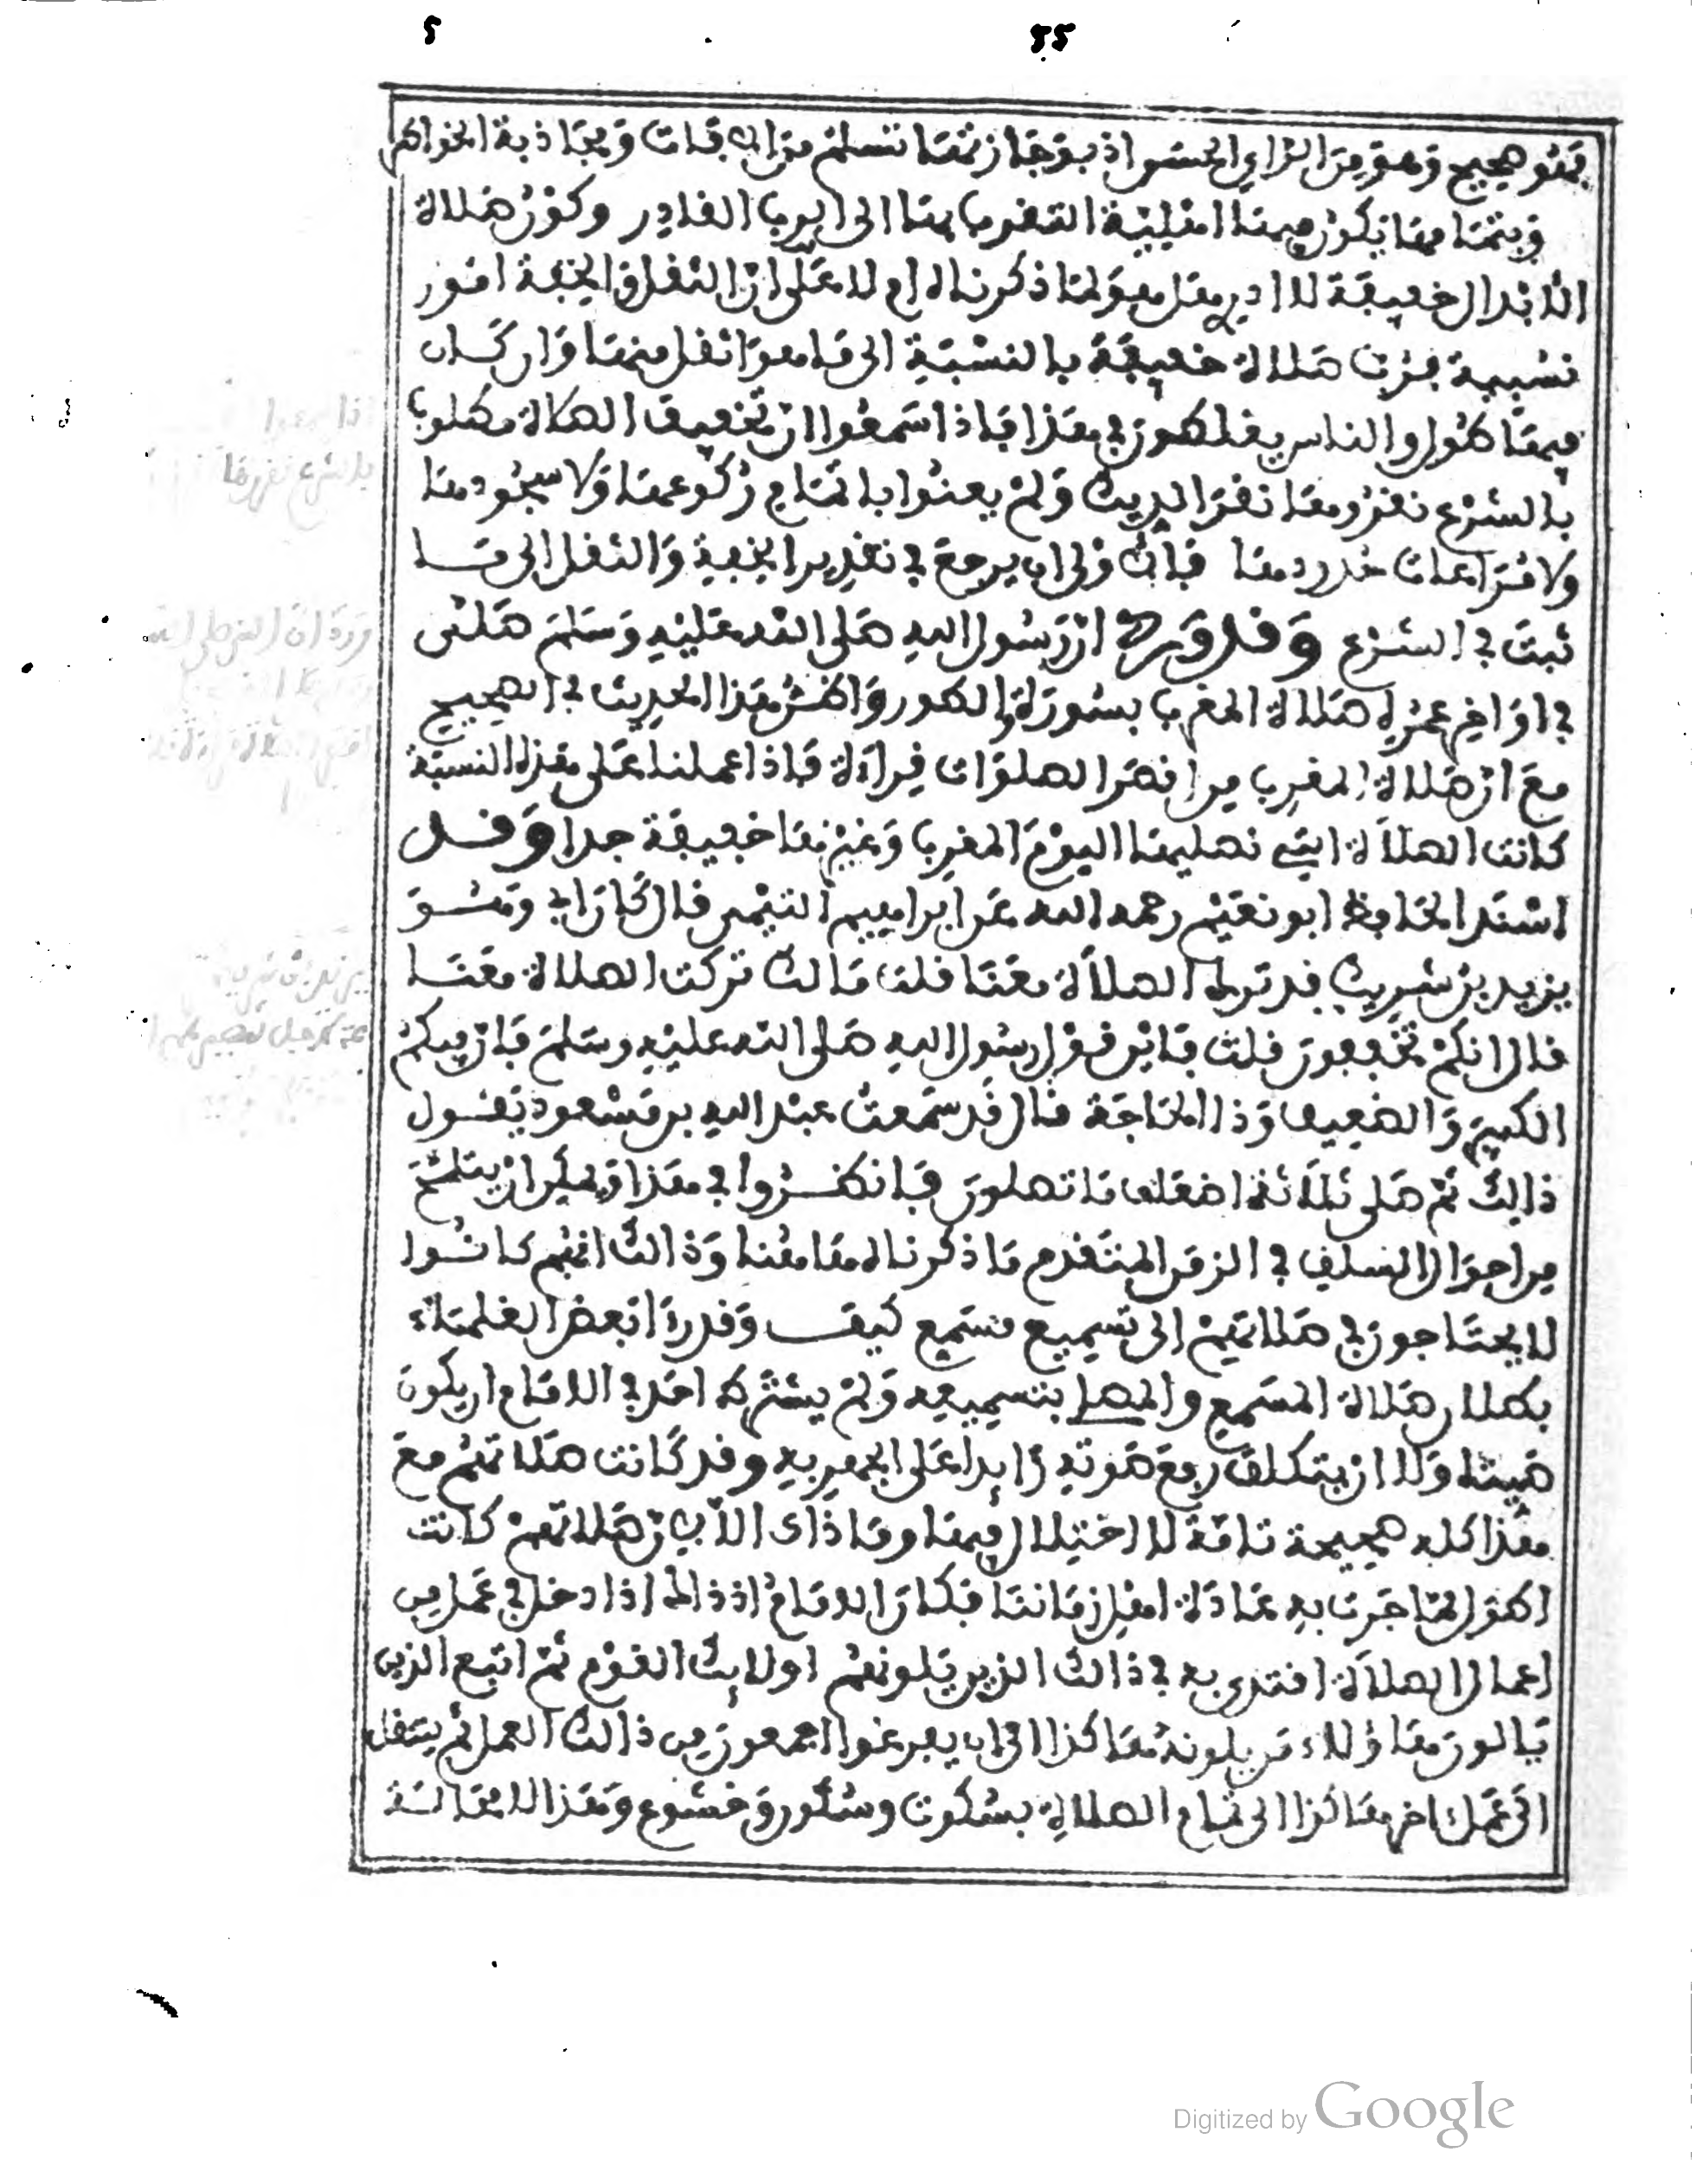 5 55
فهو صحيح وهو من الراي الحسن اذ بوجازتها تسلم من الافات ومجاذبة الخواطر
وبتمامها يكون فيها اهلية التقرب بها الى الرب القادر وكون صلاة
الابدال خفيفة لا ادري هل هو لما ذكرناه ام لا على ان الثقل والخفة امور
نسبية فرب صلاة خفيفة بالنسبة الى ما هو اثقل منها وان كان
فيها طول والناس يغلطون في هذا فاذا سمعوا ان تخفيف الصلاة مطلوب
بالشرع نقروها نقر الديك ولم يعنوا باتمام ركوعها ولا سجودها
ولا مراعات حدودها فالاولى ان يرجع في تقدير الخفة والثقل الى ما
ثبت في الشرع وقد ورد ان رسول الله صلى الله عليه وسلم صلى
في اواخر عمره صلاة المغرب بسورة والطور واظن هذا الحديث في الصحيح
مع ان صلاة المغرب من اقصر الصلوات قراءة فاذا عملنا على هذه النسبة
كانت الصلاة التي نصليها اليوم المغرب وغيرها خفيفة جدا وقد
اسند الحافظ ابو نعيم رحمه الله عن ابراهيم التيمي قال كان ابي
يزيد بن شريك قد ترك الصلاة معنا قلت مالك تركت الصلاة معنا
قال انكم تخففون قلت فاين قول رسول الله صلى الله عليه وسلم فان فيكم
الكبير والضعيف وذا الحاجة قال قد سمعت عبد الله بن مسعود يقول
ذالك ثم صلى ثلاثة اضعاف ما تصلون فانظروا في هذا
من احوال السلف في الزمن المتقدم ما ذكرناه هاهنا وذالك انهم كانوا
لا يحتاجون في صلاتهم الى تسميع مسمع كيف وقد رءا بعض العلماء
بطلان صلاة المسمع والمصلي بتسميعه ولم يشترط احد في الامام ان يكون
صيتا ولا ان يتكلف رفع صوته زايدا على الجهر به وقد كانت صلاتهم مع
هذا كله صحيحة تامة لا اختلال فيها وما ذاك الا لان صلاتهم كانت
اطول مما جرت به عادة اهل زماننا فكان الامام اذ ذاك اذا دخل في عمل من
اعمال الصلاة اقتدى به في ذالك الذين يلونهم اولايك القوم ثم اتبع الذين
يالون هاؤلاء من يلونه هاكذا الى ان يفرغوا اجمعون من ذالك العمل ثم ينتقل
الى عمل اخر هاكذا الى تمام الصلاة بسكوت وسكون وخشوع وهذا لا محالة
Digitized by Google